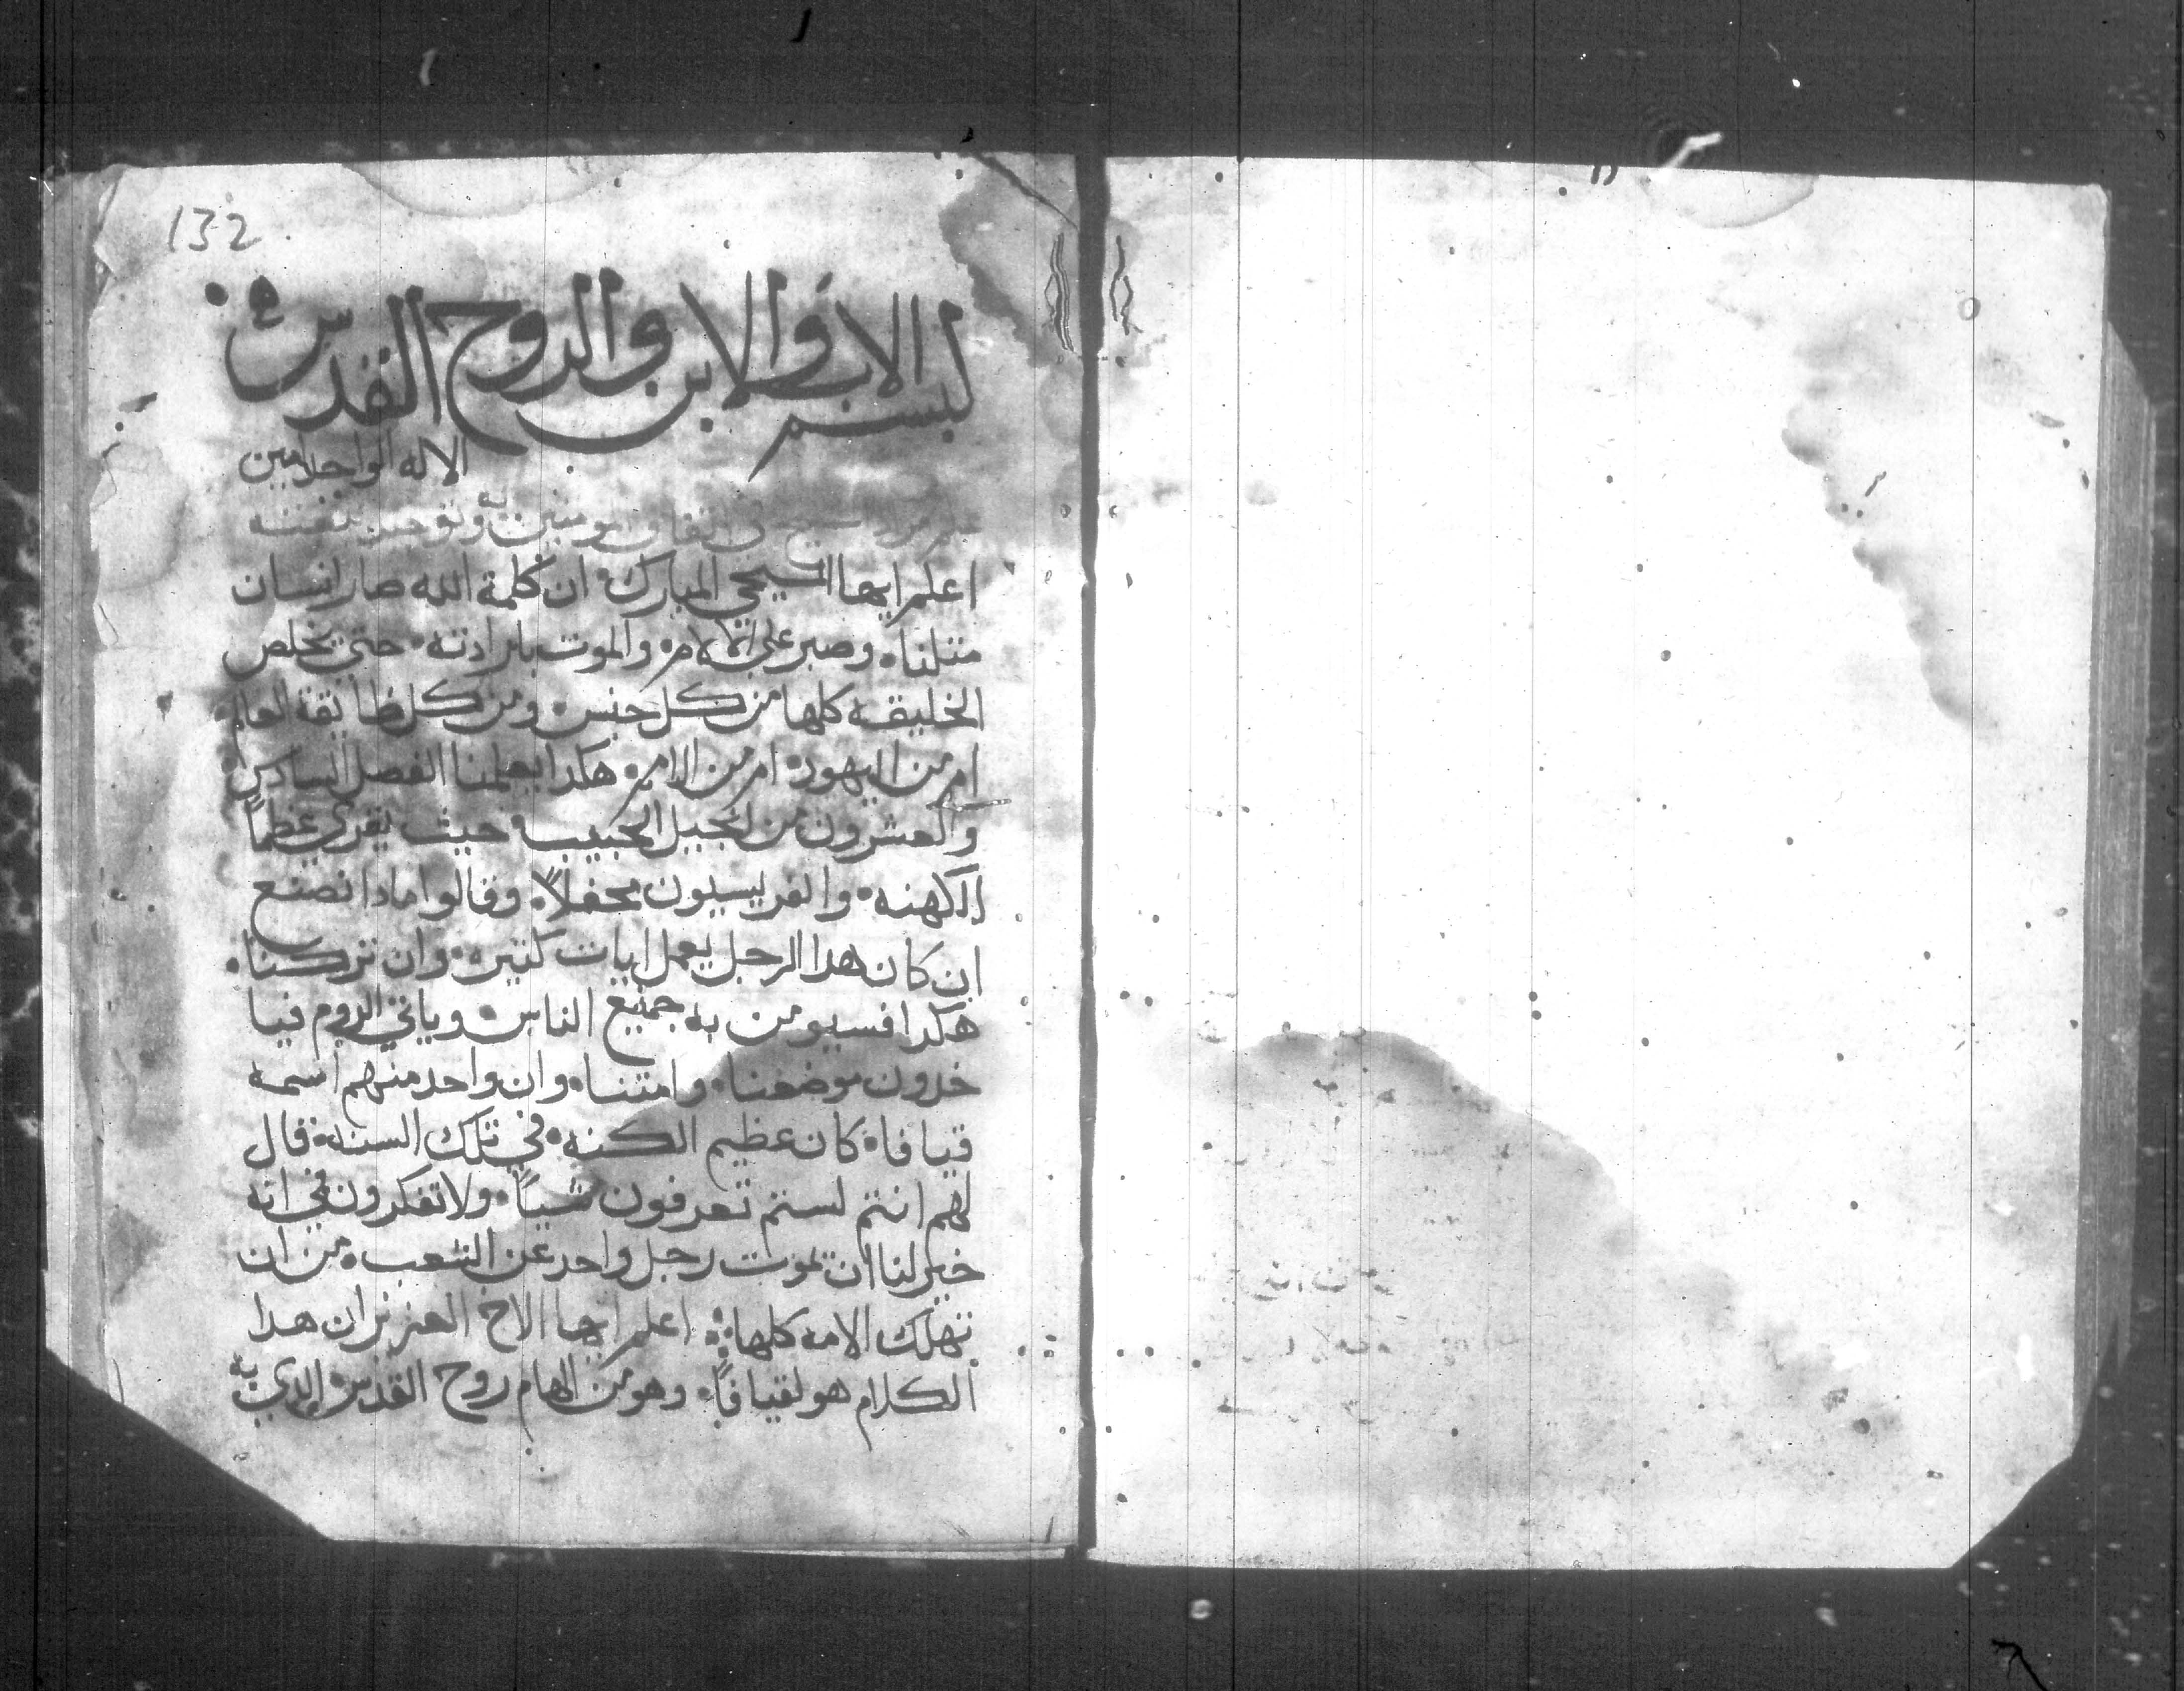 132
لبسم الاب والابن والروح القدس
الاله الواحد امين
اعلم ايها المسيحي المبارك ان كلمة الله صار انسان
متلنا وصبر على الالام والموت بارادته حتي يخلص
الخليقه كلها من كل جنس ومن كل طايفة العالم
ام من اليهود ام من الامم هكدا يعلمنا الفصل السادس
والعشرون من انجيل الحبيب حيث يقري عظما
الكهنه والفريسيون محفلاً وقالوا مادا نصنع
ان كان هدا الرجل يعمل ايات كتيره وان تركناه
هكدا فسيومن به جميع الناس وياتي الروم فيا
خدون موضعنا وامتنا وان واحد منهم اسمه
قيافا كان عظيم الكنه في تلك السنه قال
لهم انتم لستم تعرفون شياً ولا تفكرون في انه
خير لنا ان يموت رجل واحد عن الشعب من ان
تهلك الامه كلها اعلم ايها الاخ العزيز ان هدا
الكلام هو لقيافاً وهو من الهام روح القدس الدي به